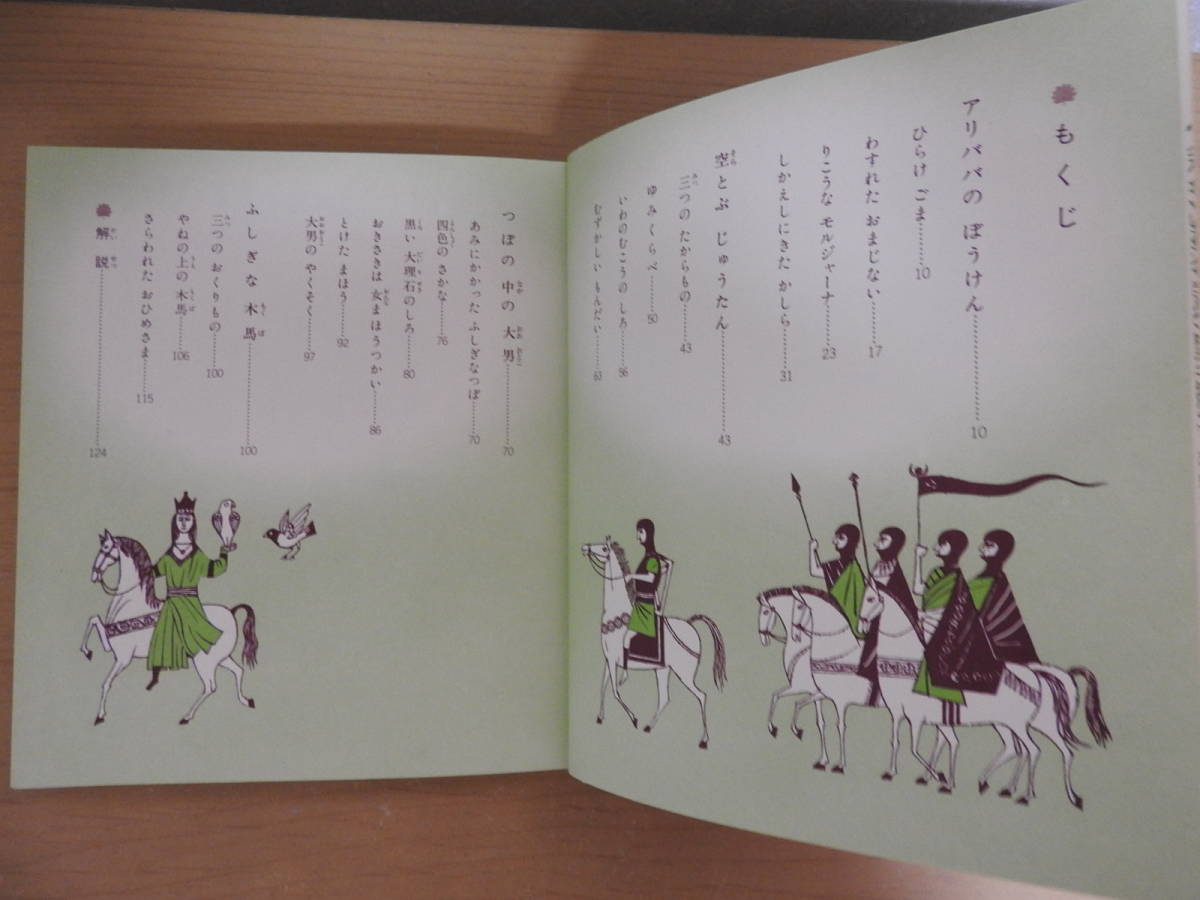 もくじ
アリババの ぼうけん……………10
ひらけ ごま………10
わすれた おまじない………17
りこうな モルジャーナ………23
しかえしにきた かしら………31
空とぶ じゅうたん……………43
三つの たからもの………43
ゆみくらべ………50
いわのむこうの しろ………56
むずかしい もんだい………63
つぼの 中の 大男……………70
あみにかかった ふしぎなつぼ………70
四色の さかな………76
黒い 大理石のしろ………80
おきさきは 女まほうつかい………86
とけた まほう………92
大男の やくそく………97
ふしぎな 木馬……………100
三つの おくりもの………100
やねの上の 木馬………106
さらわれた おひめさま………115
解説……………124